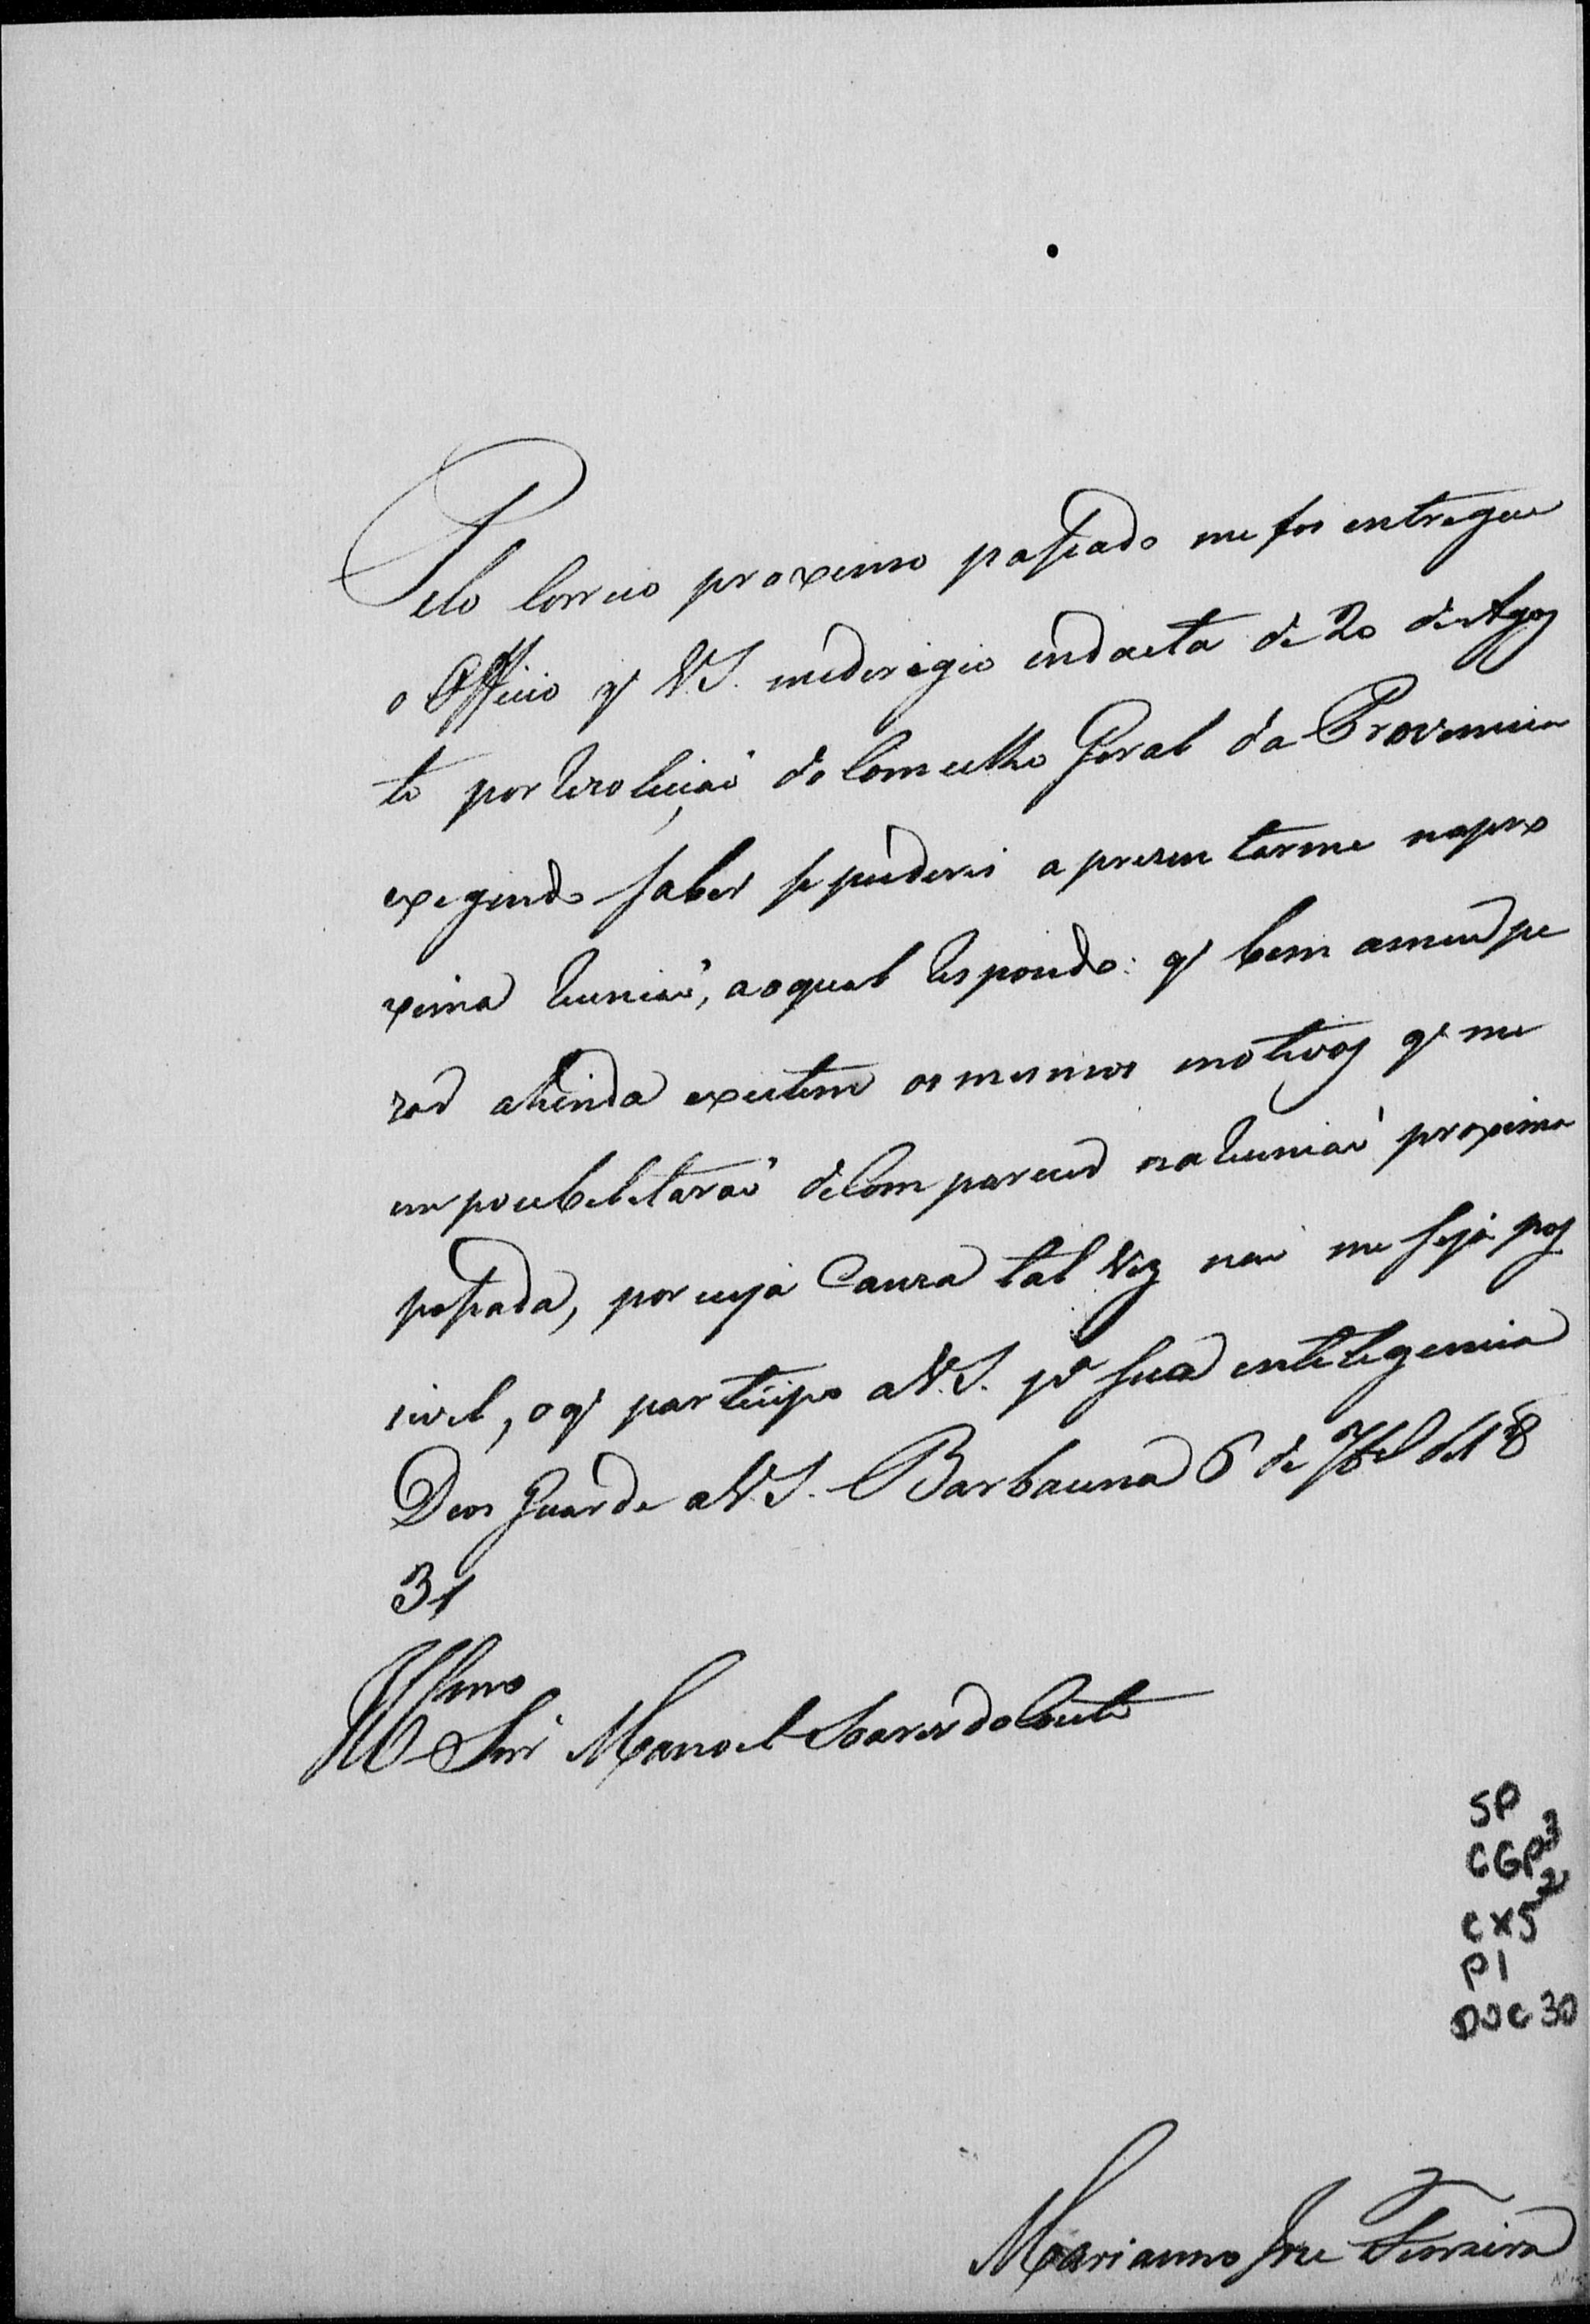 Pelo Correio proxemo passado me foi entregue
o Officio q' V.S. mederigio endacta de 20 de Agos
to por rezoluçaõ do Comcelho Geral da Provencia
exegindo saber se puderei apresentarme napro
xema reuniaõ, aoqual respondo: q' bem ameu pe
zar ahinda existem os mesmos motivos q' me
empocibelitaraõ de Comparecer na reuniaõ proxima
passada, por cuja Cauza tal vez naõ me seja pos
sivel, o q' participo aV.S. pª sua entelegencia
Deos Guarde aV.S. Barbacena 6 de 7br̃o de 18
31
Illmo
Snr̃ Manoel Soares do Couto
SP
CGP3
CX52
P1
DOC 30
Marianno Joze Ferreira